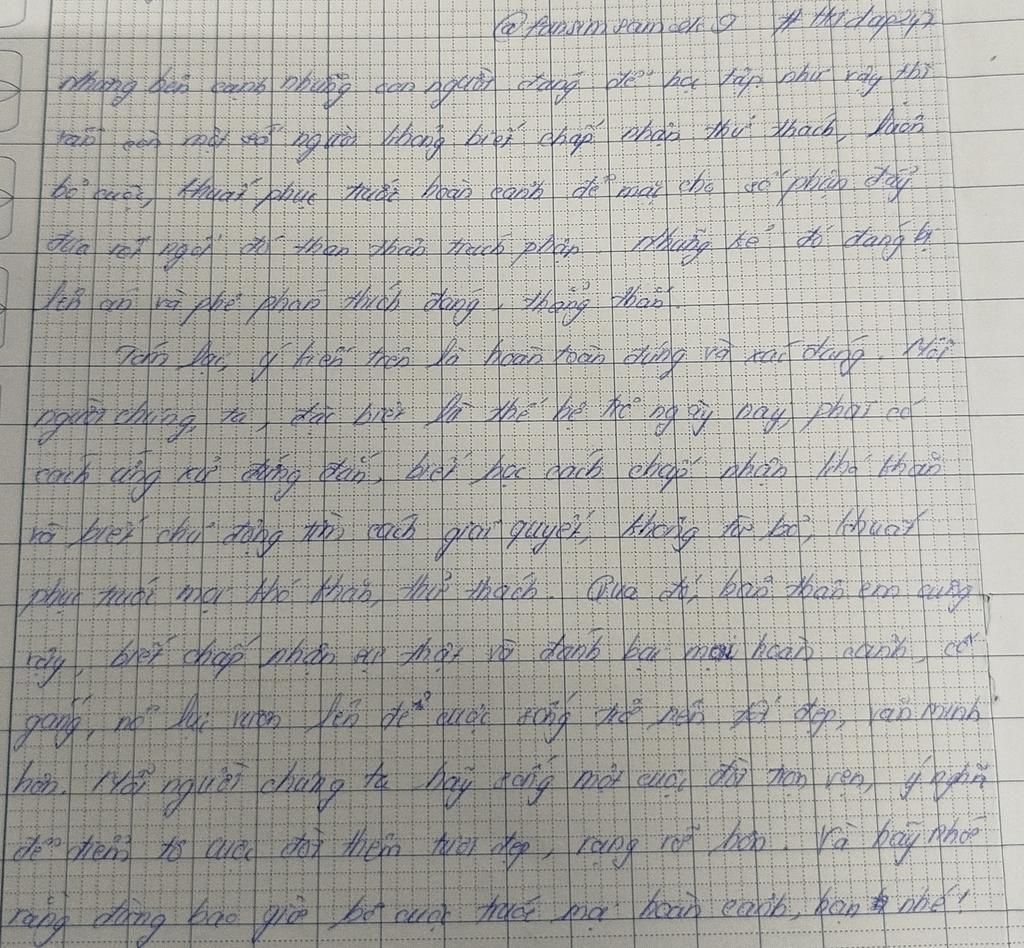 @fansimsamcok9 #Hoidap247
Nhưng bên cạnh những con người đáng để học tập như vậy thì
vẫn còn một số người không biết chấp nhận thử thách, luôn
bỏ cuộc, khuất phục trước hoàn cảnh để mặc cho số phận đẩy
đưa rồi ngồi đó than thân trách phận. Những kẻ đó đáng bị
lên án và phê phán thích đáng, thẳng thắn.
Tóm lại, ý kiến trên là hoàn toàn đúng và xác đáng. Mỗi
người chúng ta, đặc biệt là thế hệ trẻ ngày nay, phải có
cách ứng xử đúng đắn, biết học cách chấp nhận khó khăn
và biết chủ động tìm cách giải quyết, không từ bỏ, khuất
phục trước mọi khó khăn, thử thách. Qua đó, bản thân em cũng
vậy, biết chấp nhận sự thật và đánh bại mọi hoàn cảnh, cố
gắng, nỗ lực vươn lên để cuộc sống trở nên tốt đẹp, văn minh
hơn. Mỗi người chúng ta hãy sống một cuộc đời trọn vẹn, ý nghĩa
để điểm tô cuộc đời thêm tươi đẹp, rạng rỡ hơn. Và hãy nhớ
rằng đừng bao giờ bỏ cuộc trước mọi hoàn cảnh, bạn nhé!